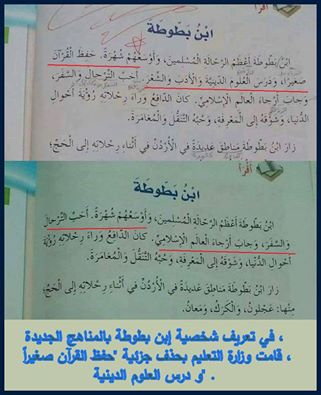 أقرأ
ابْنُ بَطّوطَةَ
ابْنُ بَطّوطَةَ أَعْظَمُ الرَّحّالَةِ الْمُسْلِمينَ، وَأَوْسَعُهُمْ شُهْرَةً. حَفِظَ الْقُرْآنَ
صَغيرًا، وَدَرَسَ الْعُلومَ الدّينِيَّةَ وَالْأَدَبَ وَالشِّعْرَ. أَحَبَّ التَّرْحالَ وَالسَّفَرَ،
وَجابَ أَرْجاءَ الْعالَمِ الْإِسْلامِيِّ. كانَ الدّافِعُ وَراءَ رِحْلاتِهِ رُؤْيَةَ أَحْوالِ
الدُّنْيا، وَشَوْقَهُ إِلى الْمَعْرِفَةِ، وَحُبَّهُ التَّنَقُّلَ وَالْمُغامَرَةَ.
زارَ ابْنُ بَطّوطَةَ مَناطِقَ عَديدَةً في الْأُرْدُنِّ في أَثْناءِ رِحْلاتِهِ إِلى الْحَجِّ؛
أقرأ
ابْنُ بَطّوطَةَ
ابْنُ بَطّوطَةَ أَعْظَمُ الرَّحّالَةِ الْمُسْلِمينَ، وَأَوْسَعُهُمْ شُهْرَةً. أَحَبَّ التَّرْحالَ
وَالسَّفَرَ، وَجابَ أَرْجاءَ الْعالَمِ الْإِسْلامِيِّ. كانَ الدّافِعُ وَراءَ رِحْلاتِهِ رُؤْيَةَ
أَحْوالِ الدُّنْيا، وَشَوْقَهُ إِلى الْمَعْرِفَةِ، وَحُبَّهُ التَّنَقُّلَ وَالْمُغامَرَةَ.
زارَ ابْنُ بَطّوطَةَ مَناطِقَ عَديدَةً في الْأُرْدُنِّ في أَثْناءِ رِحْلاتِهِ إِلى الْحَجِّ،
مِنْها: عَجْلونُ، وَالْكَرَكُ، وَمَعانُ.
في تعريف شخصية إبن بطوطة بالمناهج الجديدة ،
قامت وزارة التعليم بحذف جزئية "حفظ القرآن صغيراً ،
و درس العلوم الدينية" .